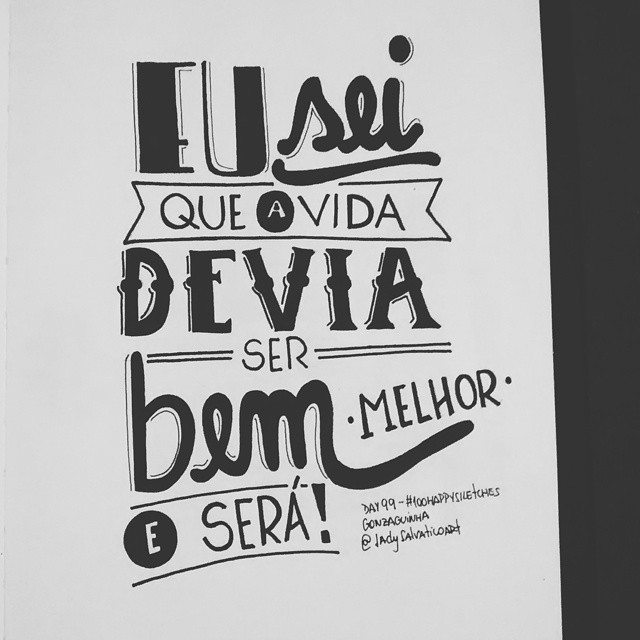 EU sei
QUE A VIDA
DEVIA
SER
bem ·MELHOR·
E SERÁ!
DAY 99 - #100HAPPYSKETCHES
GONZAGUINHA
@ladySalvaticoart